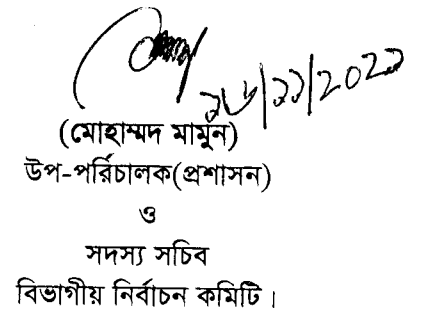 ২৮/১১/২০২১
(মোহাম্মদ মামুন)
উপ-পরিচালক(প্রশাসন)
ও
সদস্য সচিব
বিভাগীয় নির্বাচন কমিটি।